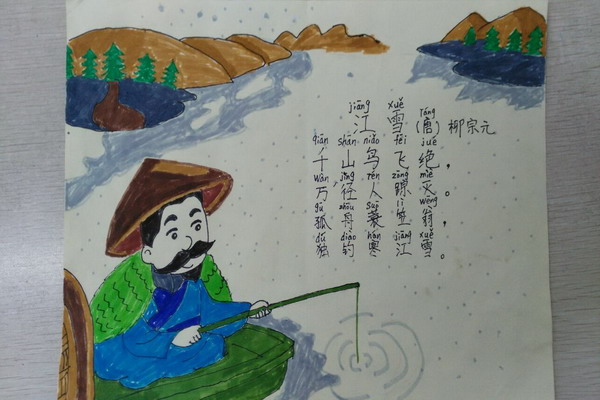 jiāng xuě táng
江 雪 (唐) 柳宗元
qiān shān niǎo fēi jué
千 山 鸟 飞 绝，
wàn jìng rén zōng miè
万 径 人 踪 灭。
gū zhōu suō lì wēng
孤 舟 蓑 笠 翁，
dú diào hán jiāng xuě
独 钓 寒 江 雪。